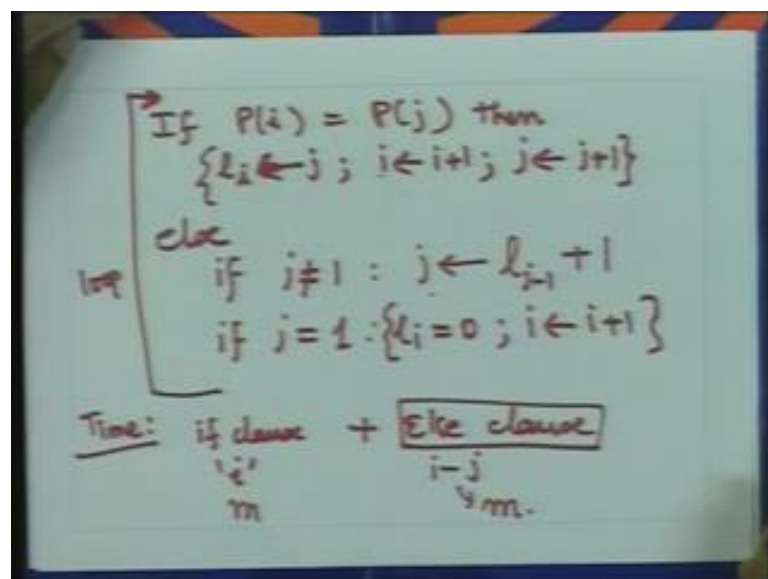 If P(i) = P(j) then
{l_i ← j ; i ← i+1 ; j ← j+1}
else
if j ≠ 1 : j ← l_{j-1} + 1
loop
if j = 1 : {l_i = 0 ; i ← i+1}
Time: if clause + Else clause
'i' i - j
m m.